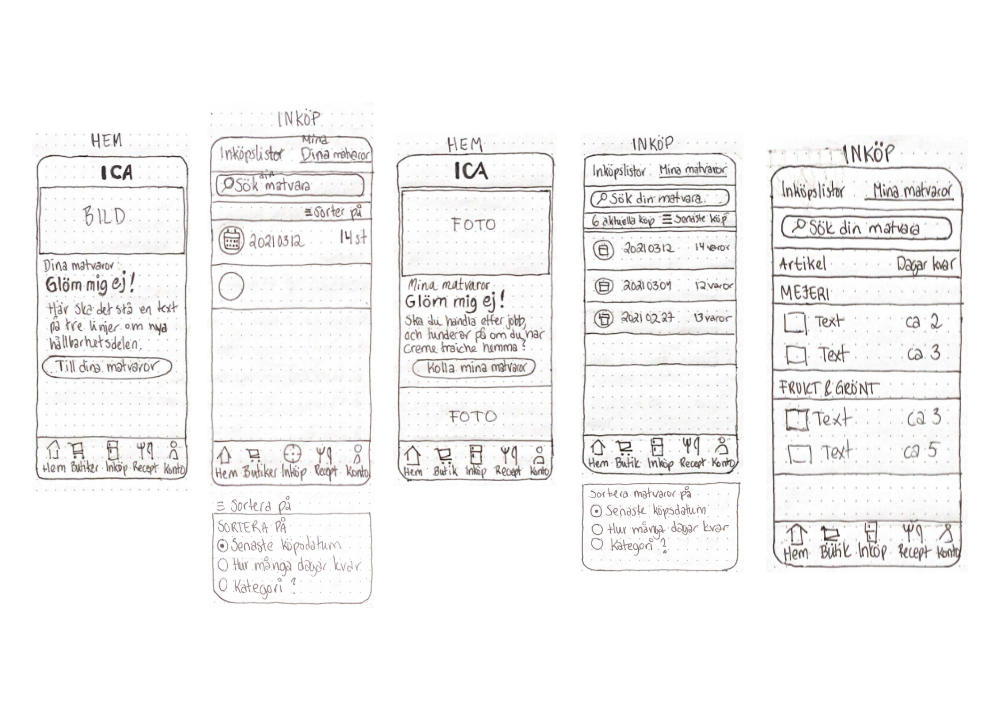 HEM
ICA
BILD
Dina matvaror
Glöm mig ej!
Här ska det stå en text
på tre linjer om nya
hållbarhetsdelen.
Till dina matvaror
Hem Butiker Inköp Recept Konto
INKÖP
Mina
Inköpslistor Dina matvaror
din
Sök matvara
Sorter på
20210312 14 st
Hem Butiker Inköp Recept Konto
Sortera på
SORTERA PÅ
Senaste köpsdatum
Hur många dagar kvar
Kategori ?
HEM
ICA
FOTO
Mina matvaror
Glöm mig ej!
Ska du handla efter jobb,
och funderar på om du har
Creme fraiche hemma?
Kolla mina matvaror
FOTO
Hem Butik Inköp Recept Konto
INKÖP
Inköpslistor Mina matvaror
Sök din matvara
6 aktuella köp Senaste köp
20210312 14 varor
20210309 12 varor
20210227 13 varor
Hem Butik Inköp Recept Konto
Sortera matvaror på
Senaste köpsdatum
Hur många dagar kvar
Kategori ?
INKÖP
Inköpslistor Mina matvaror
Sök din matvara
Artikel Dagar kvar
MEJERI
Text ca 2
Text ca 3
FRUKT & GRÖNT
Text ca 3
Text ca 5
Hem Butik Inköp Recept Konto